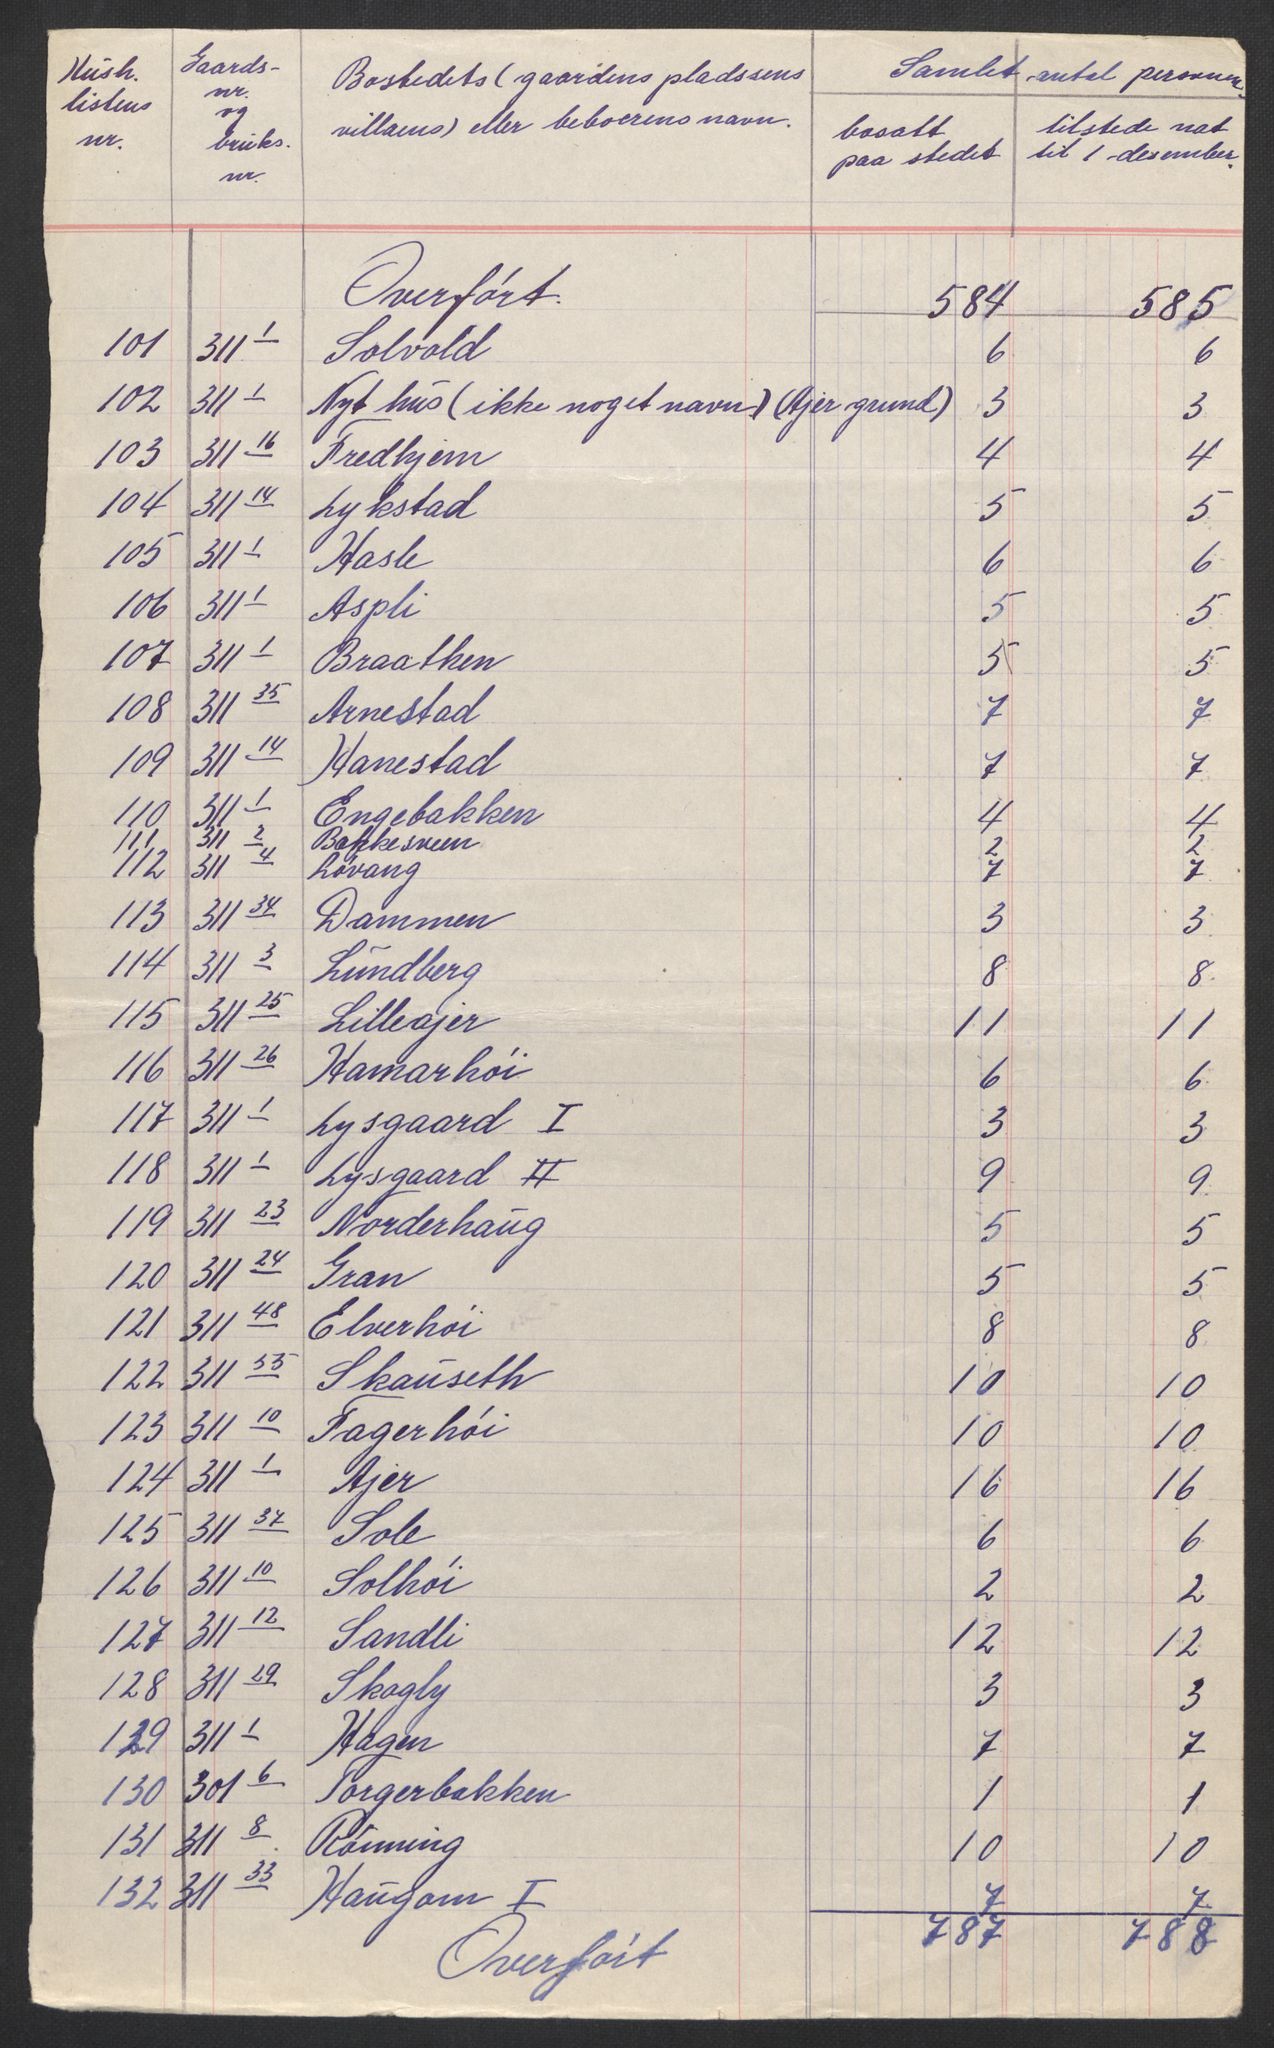 Hush. listens nr. | Gaards- nr. og bruks. nr. | Bostedets (gaardens pladssens villaens) eller beboerens navn. | Samlet antal personer. bosatt paa stedet | tilstede nat til 1 desember.
Overført. 584 585
101 311 1 Solvold 6 6
102 311 1 Nyt hus (ikke noget navn) (Ajer grund) 3 3
103 311 16 Fredhjem 4 4
104 311 14 Lykstad 5 5
105 311 1 Hasle 6 6
106 311 1 Aspli 5 5
107 311 1 Braathen 5 5
108 311 35 Arnestad 7 7
109 311 14 Hanestad 7 7
110 311 1 Engebakken 4 4
111 311 2 Bakkesveen 2 2
112 311 4 Løvang 7 7
113 311 34 Dammen 3 3
114 311 3 Lundberg 8 8
115 311 25 Lilleajer 11 11
116 311 26 Hamarhøi 6 6
117 311 1 Lysgaard I 3 3
118 311 1 Lysgaard II 9 9
119 311 23 Norderhaug 5 5
120 311 24 Gran 5 5
121 311 48 Elverhøi 8 8
122 311 Skauseth 10 10
123 311 10 Fagerhøi 10 10
124 311 1 Ajer 16 16
125 311 37 Sole 6 6
126 311 10 Solhøi 2 2
127 311 12 Sandli 12 12
128 311 29 Skogly 3 3
129 311 1 Hagen 7 7
130 301 6 Torgerbakken 1 1
131 311 8 Rønning 10 10
132 311 33 Haugom I 7 7
787 788
Overført